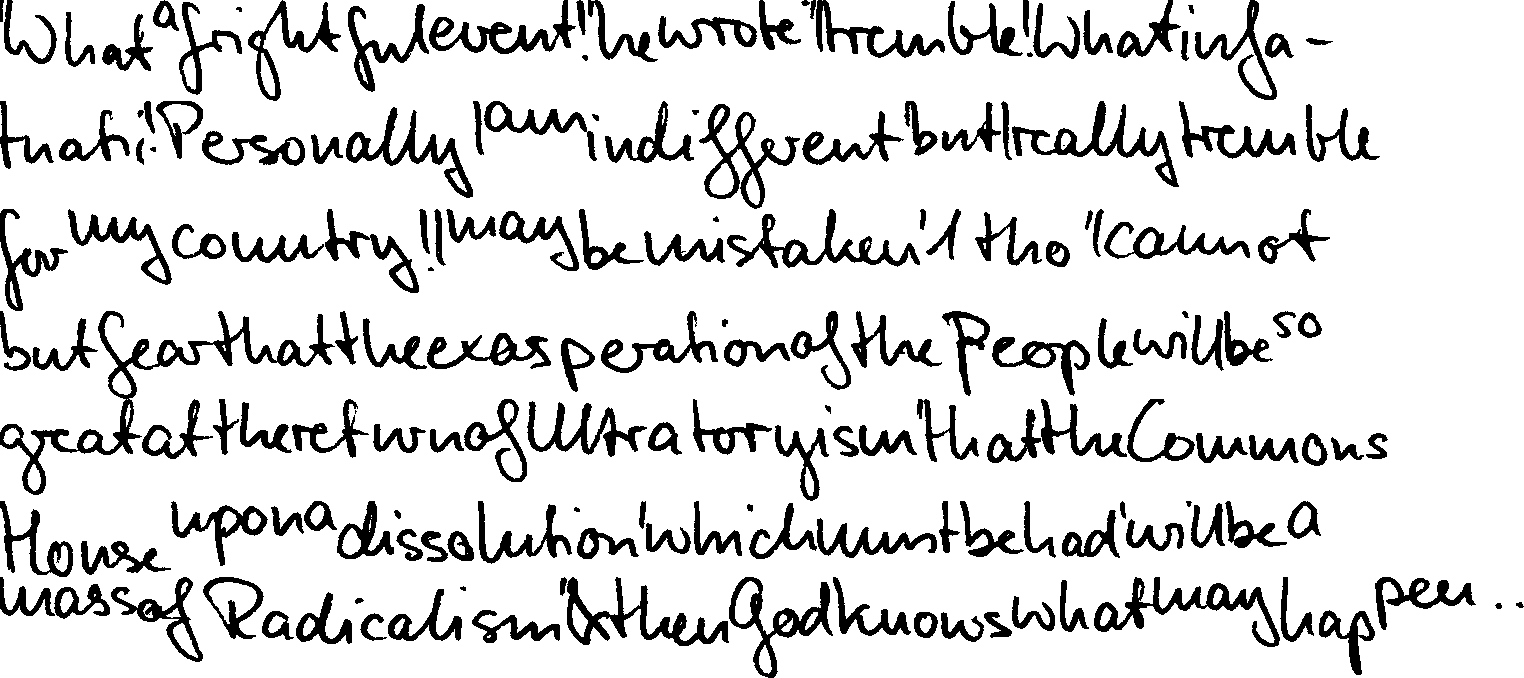 'What a frightful event!' he wrote 'I tremble! What infa-
tuati! Personally I am indifferent' but I really tremble
for my country!! I may be mistaken' I tho 'I cannot
but fear that the exasperation of the People will be so
great at the return of Ultratoryism' that the Commons
House upon a dissolution 'which must be had' will be a
mass of Radicalism' & then God knows what may happen..